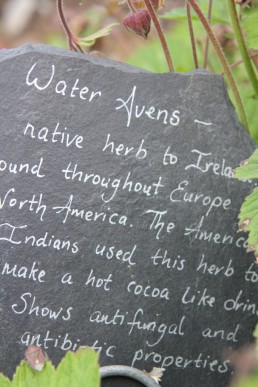 Water Avens –
native herb to Irela
ound throughout Europe
North America. The Americ
Indians used this herb to
make a hot cocoa like drin
Shows antifungal and
antibiotic properties.